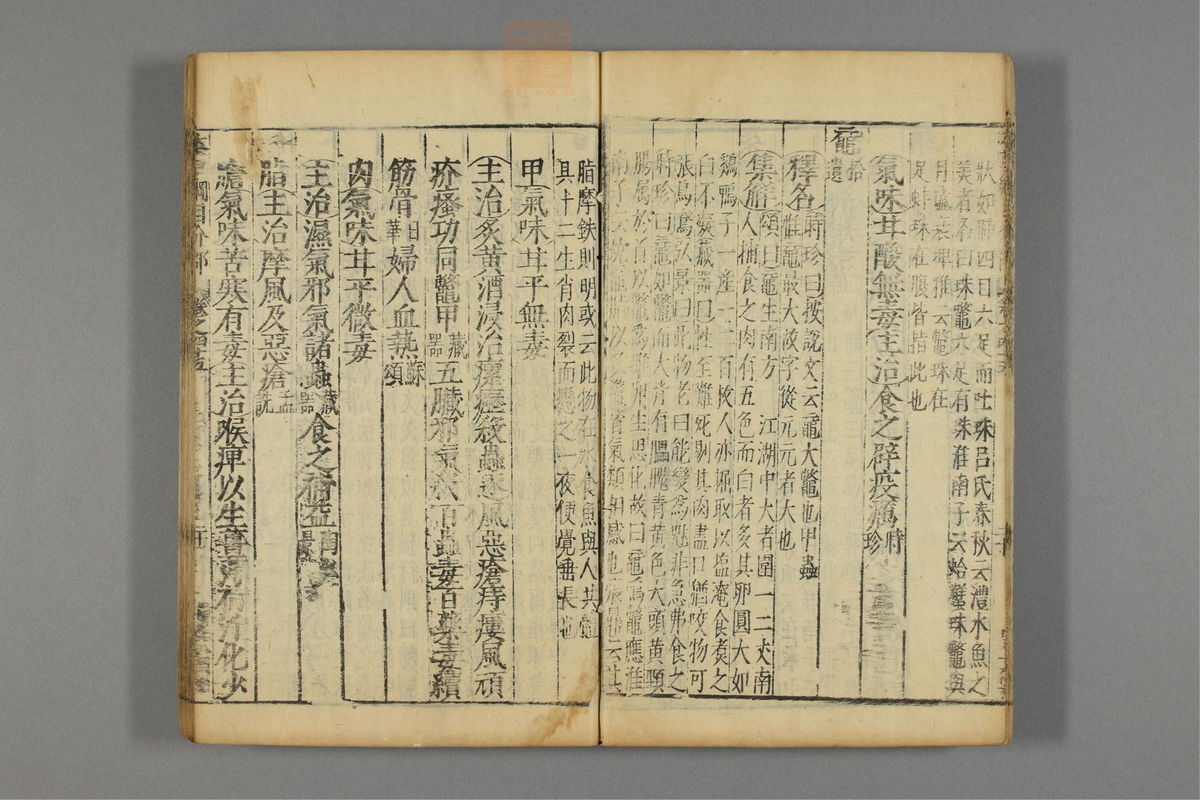 狀如肺四目六足而吐珠呂氏春秋云澧水魚之
美者名曰珠鼈六足有珠淮南子云蛤蟹珠鼈與
月盛衰埤雅云鼈珠在
足蚌珠在腹皆指此也
氣味甘酸無毒主治食之辟疫癘時珍
黿拾遺
釋名時珍曰按說文云黿大鼈也甲蟲
惟黿最大故字從元元者大也
集解頌曰黿生南方江湖中大者圍一二丈南
人捕食之肉有五色而白者多其卵圓大如
鷄鴨子一產一二百枚人亦掘取以鹽淹食煮之
白不凝藏器曰性至難死剔其肉盡口猶咬物可
張鳥鳶弘景曰此物老曰能變爲魅非急弗食之
時珍曰黿如鼈而大背有腽腲青黃色大頭黃頸
腸屬於首以鼈爲雌卵生思化故曰黿鳴鼈應淮
脂摩鉄則明或云此物在水食魚與人共體
具十二生肖肉裂而懸之一夜便覺垂長也
甲氣味甘平無毒
主治炙黃酒浸治瘰癧殺蟲逐風惡瘡痔瘻風頑
疥瘙功同鼈甲藏器五臟邪氣殺百蟲毒百藥毒續
筋骨日華婦人血熱蘇頌
肉氣味甘平微毒
主治濕氣邪氣諸蟲藏器食之補益
脂主治摩風及惡瘡孟詵
膽氣味苦寒有毒主治喉痺以生薑薄荷汁化少